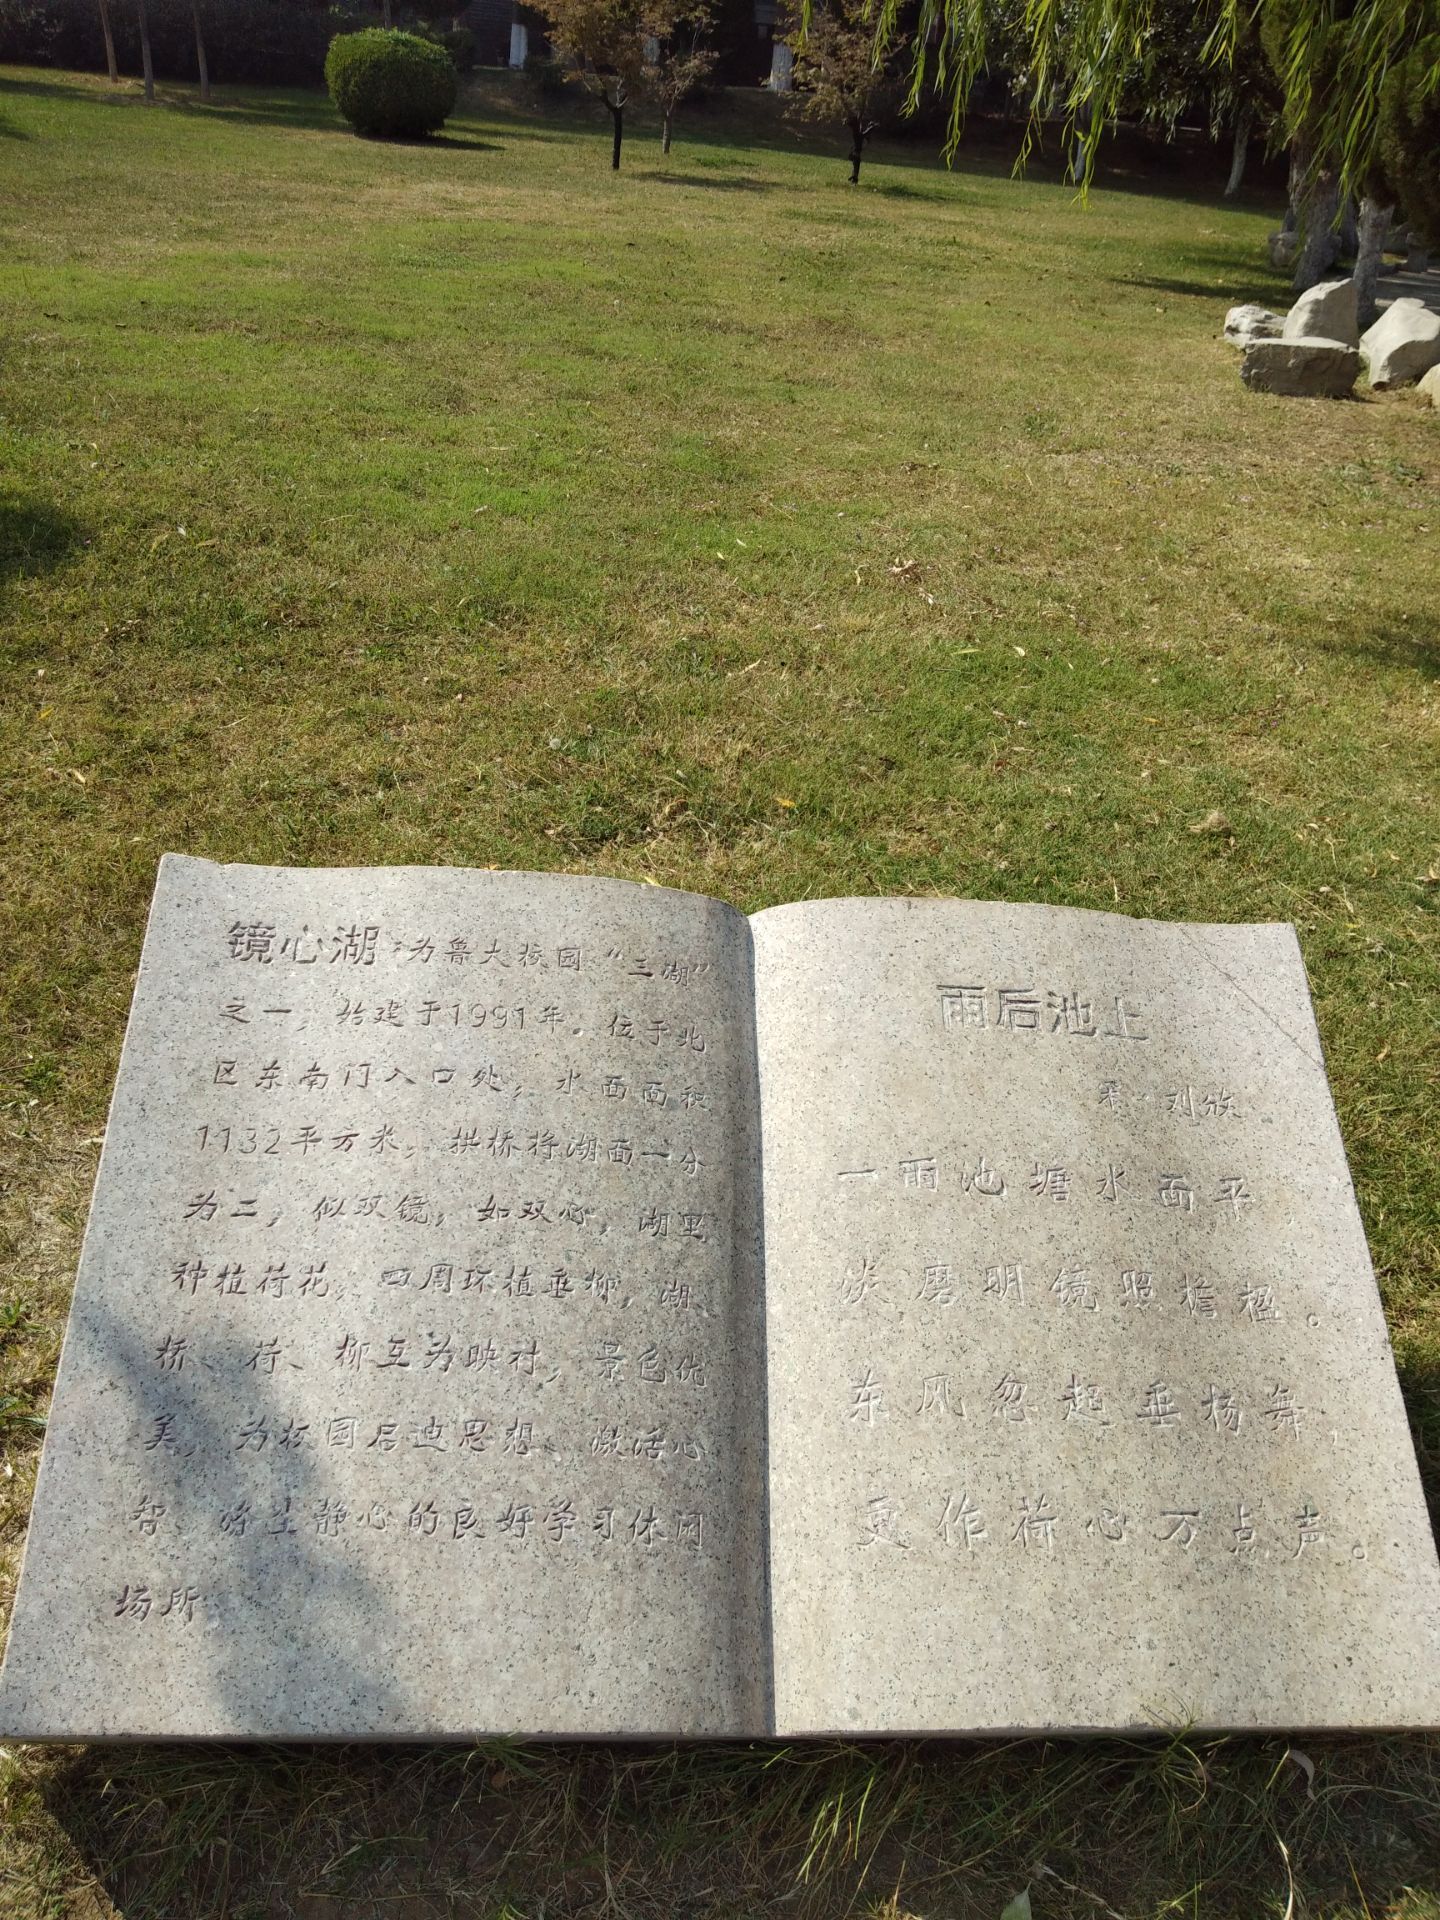 镜心湖:为鲁大校园“三湖”
之一,始建于1991年。位于北
区东南门入口处,水面面积
1132平方米,拱桥将湖面一分
为二,似双镜,如双心,湖里
种植荷花,四周环植垂柳,湖、
桥、荷、柳互为映衬,景色优
美,为校园启迪思想、激活心
智、养生静心的良好学习休闲
场所
雨后池上
宋·刘攽
一雨池塘水面平,
淡磨明镜照檐楹。
东风忽起垂杨舞,
更作荷心万点声。